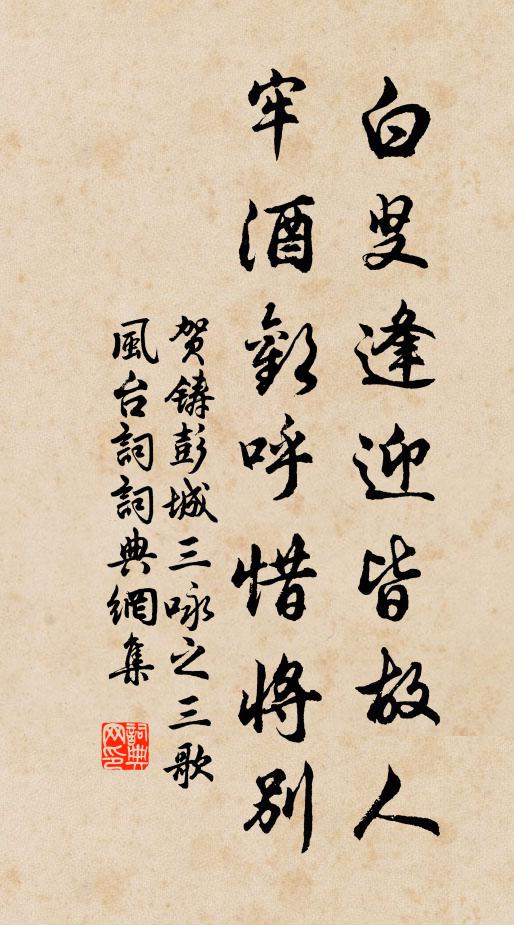 白叟逢迎皆故人
牢酒歡呼惜將別
賀鑄彭城三咏之三歌
風台詞詞典網集
詞典网印